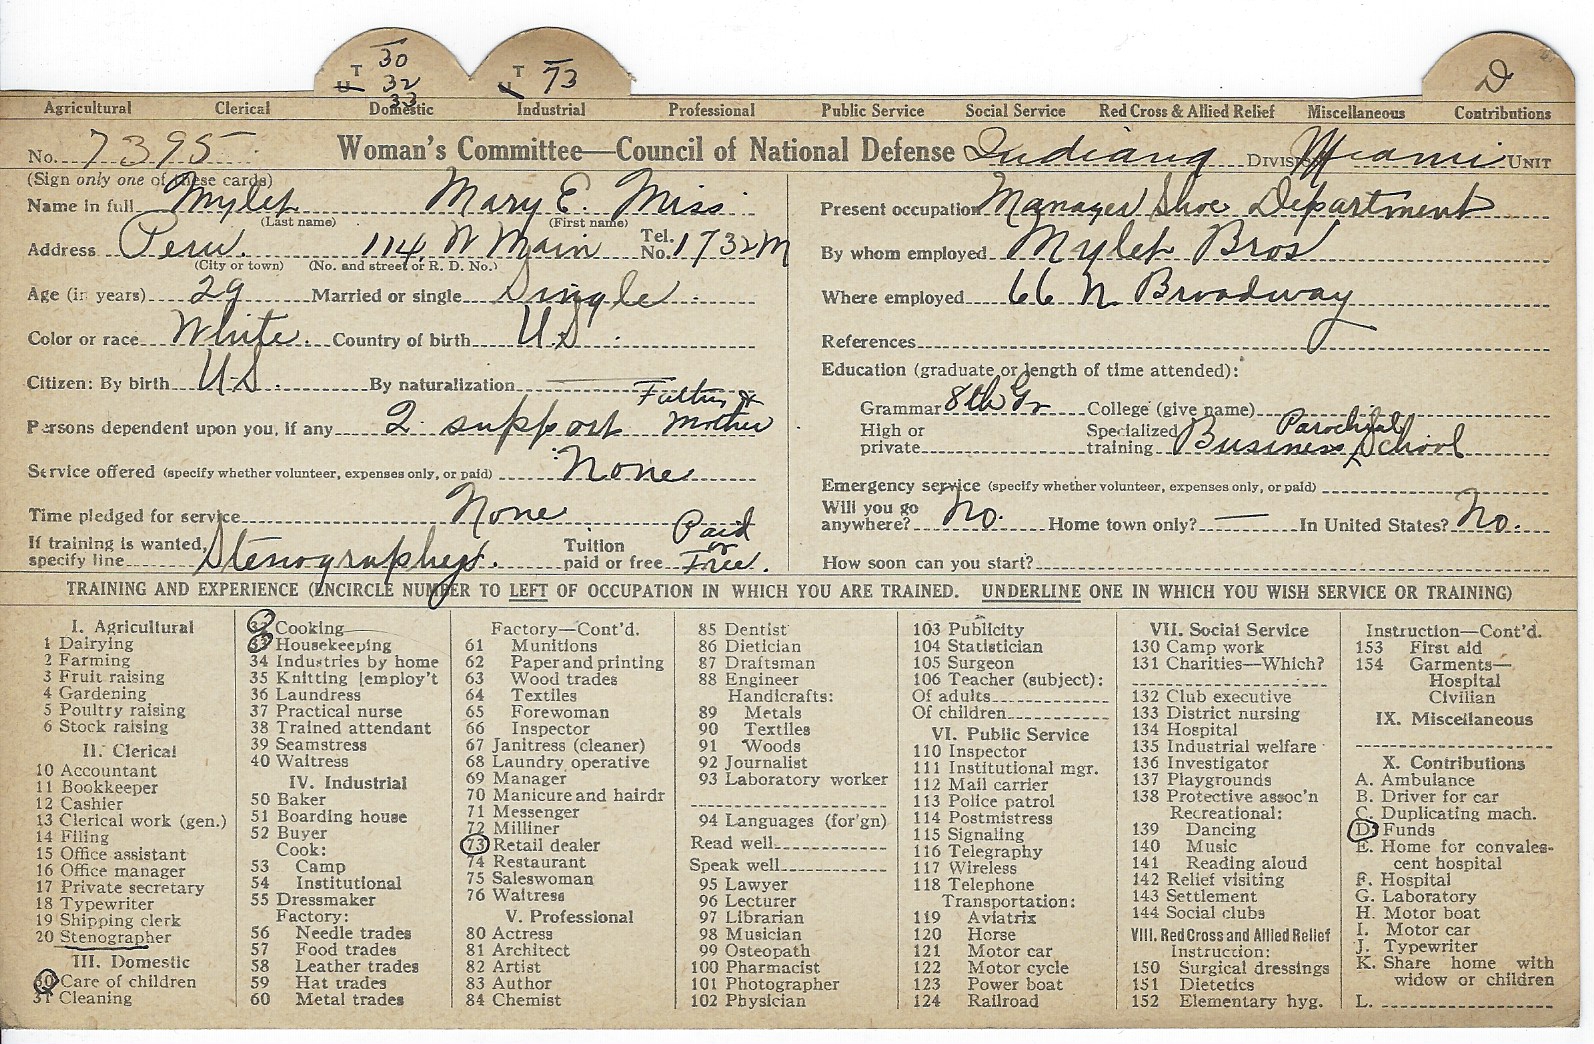 T 30
U 32
33
T 73
U
D
Agricultural Clerical Domestic Industrial Professional Public Service Social Service Red Cross & Allied Relief Miscellaneous Contributions
No. 7395 Woman's Committee—Council of National Defense Indiana Division Miami Unit
(Sign only one of these cards)
Name in full Mylet Mary E. Miss
(Last name) (First name)
Address Peru. 114 N Main Tel. No. 1732M
(City or town) (No. and street or R. D. No.)
Age (in years) 29 Married or single Single
Color or race White. Country of birth U.S.
Citizen: By birth U.S. By naturalization
Persons dependent upon you, if any 2 support Father & Mother
Service offered (specify whether volunteer, expenses only, or paid) None
Time pledged for service None
If training is wanted, specify line Stenographer. Tuition paid or free Paid or Free.
Present occupation Manager Shoe Department
By whom employed Mylet Bros
Where employed 66 N Broadway
References
Education (graduate or length of time attended):
Grammar 8th Gr College (give name)
High or private Specialized training Business Parochial School
Emergency service (specify whether volunteer, expenses only, or paid)
Will you go anywhere? No. Home town only? — In United States? No.
How soon can you start?
TRAINING AND EXPERIENCE (ENCIRCLE NUMBER TO LEFT OF OCCUPATION IN WHICH YOU ARE TRAINED. UNDERLINE ONE IN WHICH YOU WISH SERVICE OR TRAINING)
I. Agricultural
1 Dairying
2 Farming
3 Fruit raising
4 Gardening
5 Poultry raising
6 Stock raising
II. Clerical
10 Accountant
11 Bookkeeper
12 Cashier
13 Clerical work (gen.)
14 Filing
15 Office assistant
16 Office manager
17 Private secretary
18 Typewriter
19 Shipping clerk
20 Stenographer
III. Domestic
30 Care of children
31 Cleaning
32 Cooking
33 Housekeeping
34 Industries by home
35 Knitting [employ't
36 Laundress
37 Practical nurse
38 Trained attendant
39 Seamstress
40 Waitress
IV. Industrial
50 Baker
51 Boarding house
52 Buyer
Cook:
53 Camp
54 Institutional
55 Dressmaker
Factory:
56 Needle trades
57 Food trades
58 Leather trades
59 Hat trades
60 Metal trades
Factory—Cont'd.
61 Munitions
62 Paper and printing
63 Wood trades
64 Textiles
65 Forewoman
66 Inspector
67 Janitress (cleaner)
68 Laundry operative
69 Manager
70 Manicure and hairdr
71 Messenger
72 Milliner
73 Retail dealer
74 Restaurant
75 Saleswoman
76 Waitress
V. Professional
80 Actress
81 Architect
82 Artist
83 Author
84 Chemist
85 Dentist
86 Dietician
87 Draftsman
88 Engineer
Handicrafts:
89 Metals
90 Textiles
91 Woods
92 Journalist
93 Laboratory worker
94 Languages (for'gn)
Read well
Speak well
95 Lawyer
96 Lecturer
97 Librarian
98 Musician
99 Osteopath
100 Pharmacist
101 Photographer
102 Physician
103 Publicity
104 Statistician
105 Surgeon
106 Teacher (subject):
Of adults
Of children
VI. Public Service
110 Inspector
111 Institutional mgr.
112 Mail carrier
113 Police patrol
114 Postmistress
115 Signaling
116 Telegraphy
117 Wireless
118 Telephone
Transportation:
119 Aviatrix
120 Horse
121 Motor car
122 Motor cycle
123 Power boat
124 Railroad
VII. Social Service
130 Camp work
131 Charities—Which?
132 Club executive
133 District nursing
134 Hospital
135 Industrial welfare
136 Investigator
137 Playgrounds
138 Protective assoc'n
Recreational:
139 Dancing
140 Music
141 Reading aloud
142 Relief visiting
143 Settlement
144 Social clubs
VIII. Red Cross and Allied Relief
Instruction:
150 Surgical dressings
151 Dietetics
152 Elementary hyg.
Instruction—Cont'd.
153 First aid
154 Garments—
Hospital
Civilian
IX. Miscellaneous
X. Contributions
A. Ambulance
B. Driver for car
C. Duplicating mach.
D. Funds
E. Home for convales-
cent hospital
F. Hospital
G. Laboratory
H. Motor boat
I. Motor car
J. Typewriter
K. Share home with
widow or children
L.